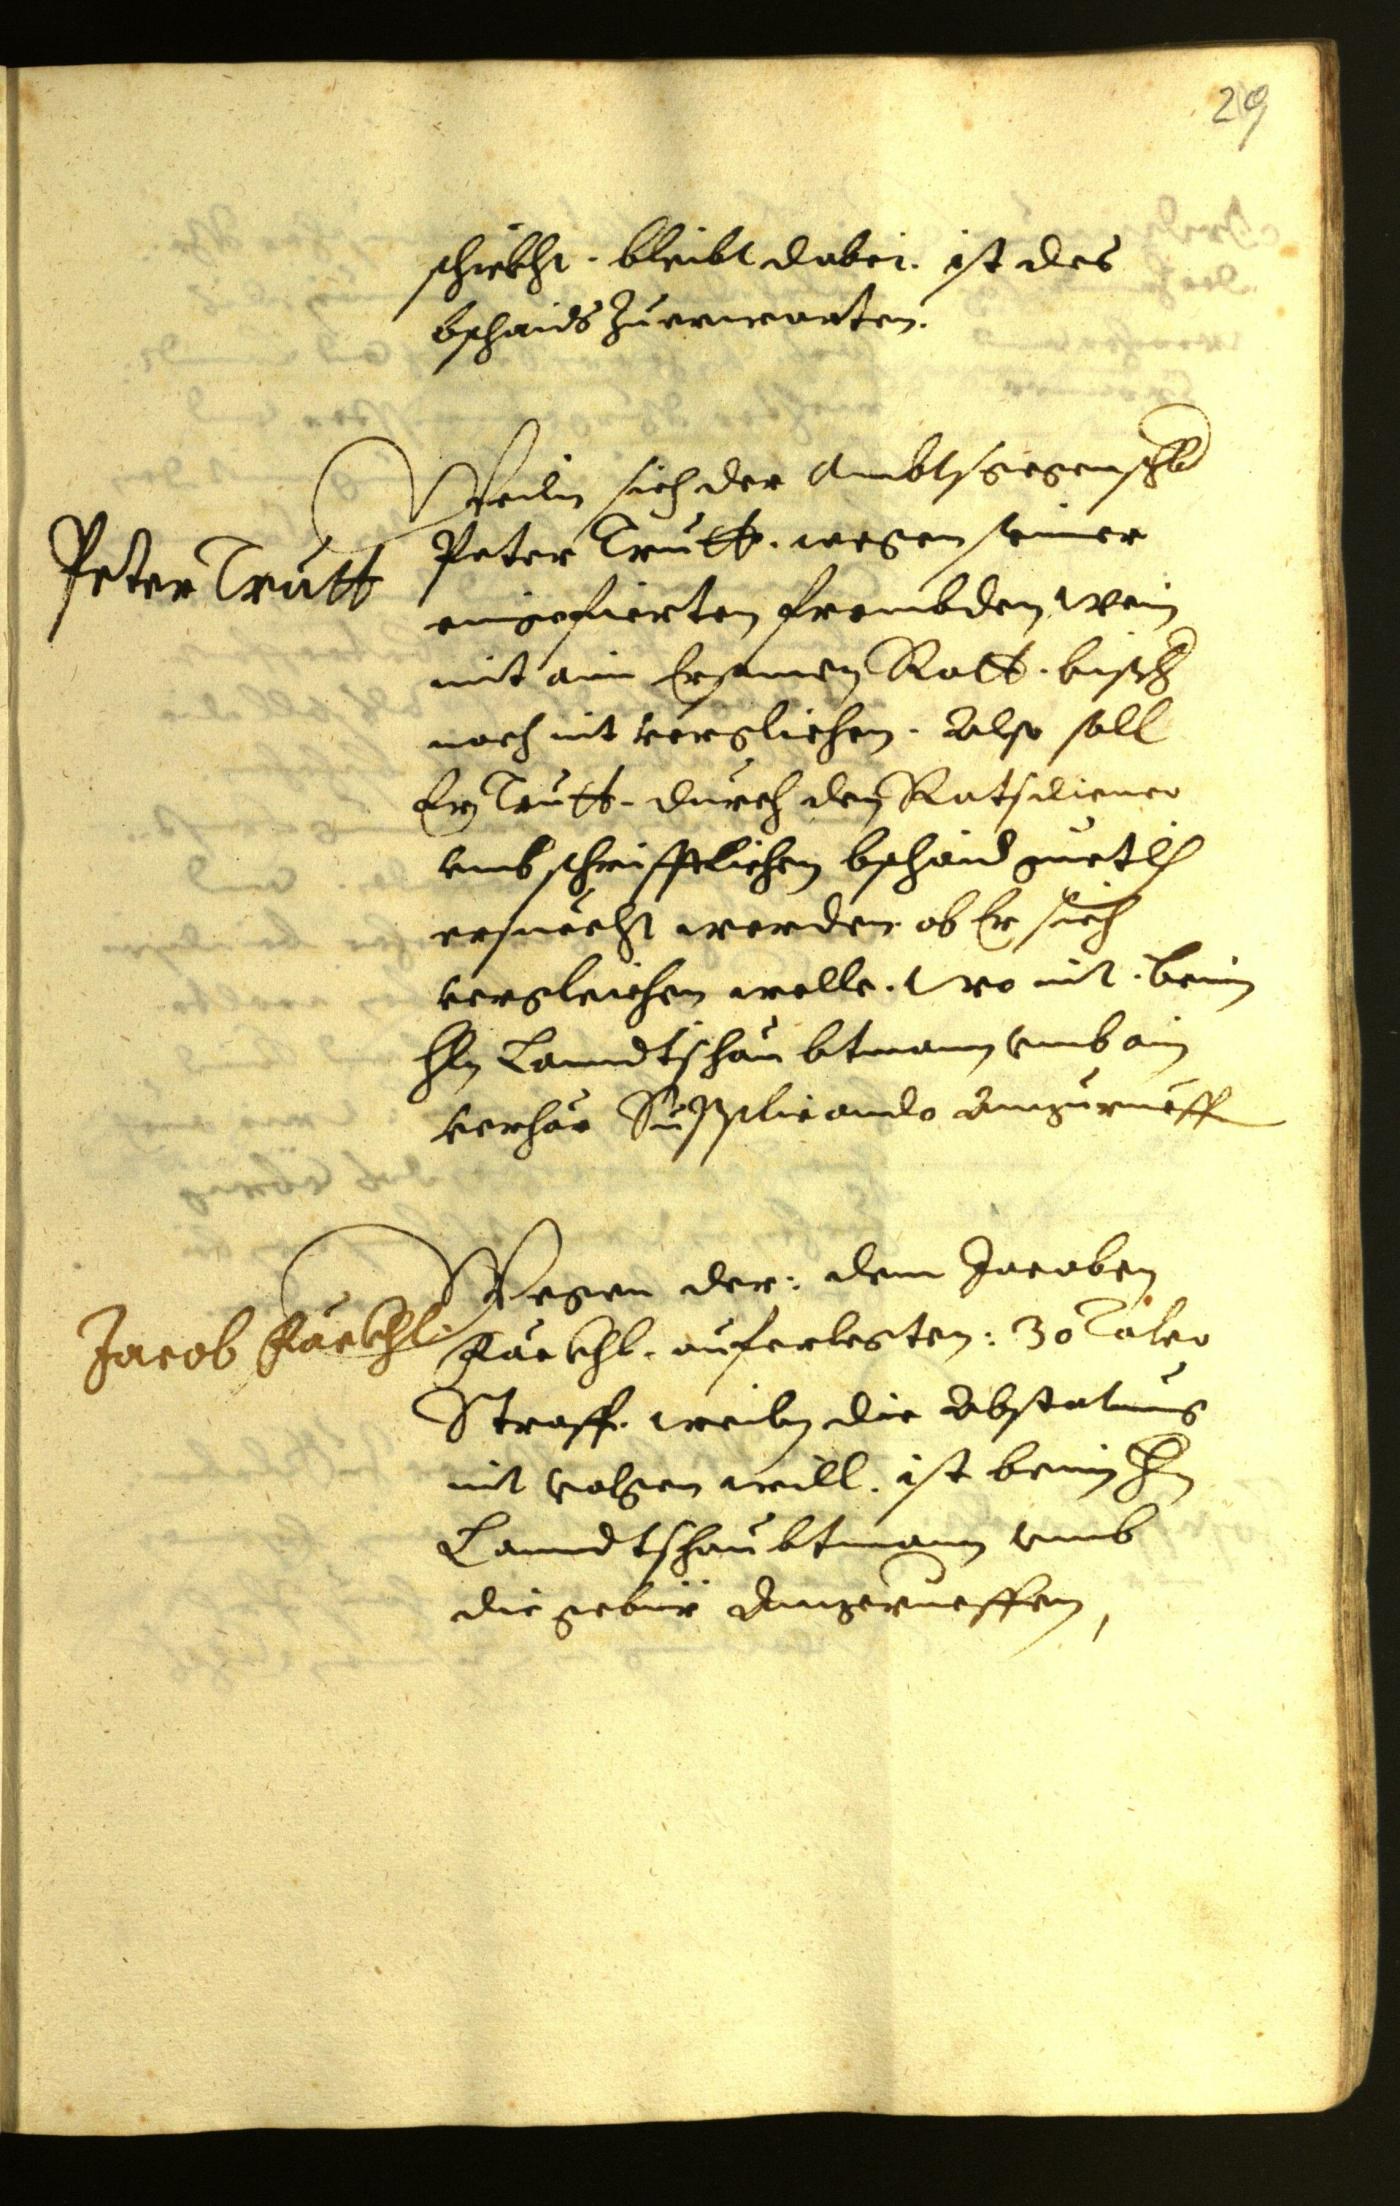 29
schickht. bleibt dabei. ist des
bschaids zuerwarten.
Peter Trutt
Weiln sich der Ambtsgegenschr
Peter Trutt. wegen seiner
eingefierten frembden Wein
mit aim Ersamen Ratt. bisheer
noch nit verglichen. Also soll
Er Trutt. durch den Ratsdiener
umb schrifftlichen bschaid guetlich
ersuecht werden ob Er sich
vergleichen welle. Wo nit. beim
Hrn Lanndtshaubtmann umb ain
verhör Supplicando Anzurueffen
Jacob Kuechl.
Wegen der: dem Jacoben
Kuechl. auferlegten: 30 Taler
Straff. weiln die Abstatung
nit volgen will. ist beim Hrn
Lanndtshaubtmann umb
die gebür Anzerueffen,